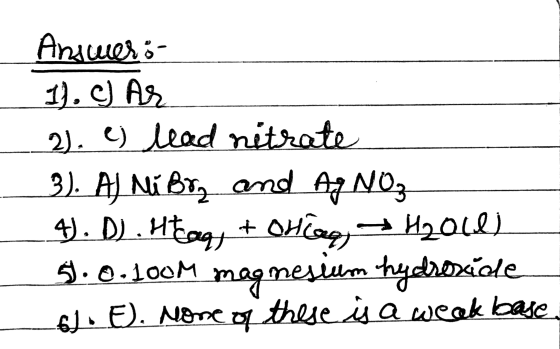 Answer :-
1). C) Ar
2). C) lead nitrate
3). A) NiBr₂ and AgNO₃
4). D). H⁺(aq) + OH⁻(aq) → H₂O(l)
5). 0.100M magnesium hydroxide
6). E). None of these is a weak base.